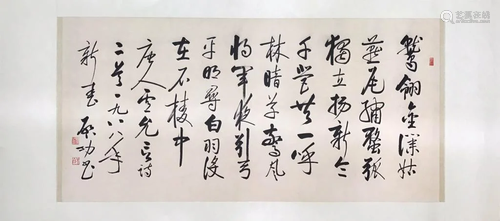 鹫翎金濮姑
燕尾绣蝥弧
獨立揚新令
千营共一呼
林暗草驚风
将軍夜引弓
平明尋白羽没
在石棱中
唐人卢允言诗
二首一九八八年
新春